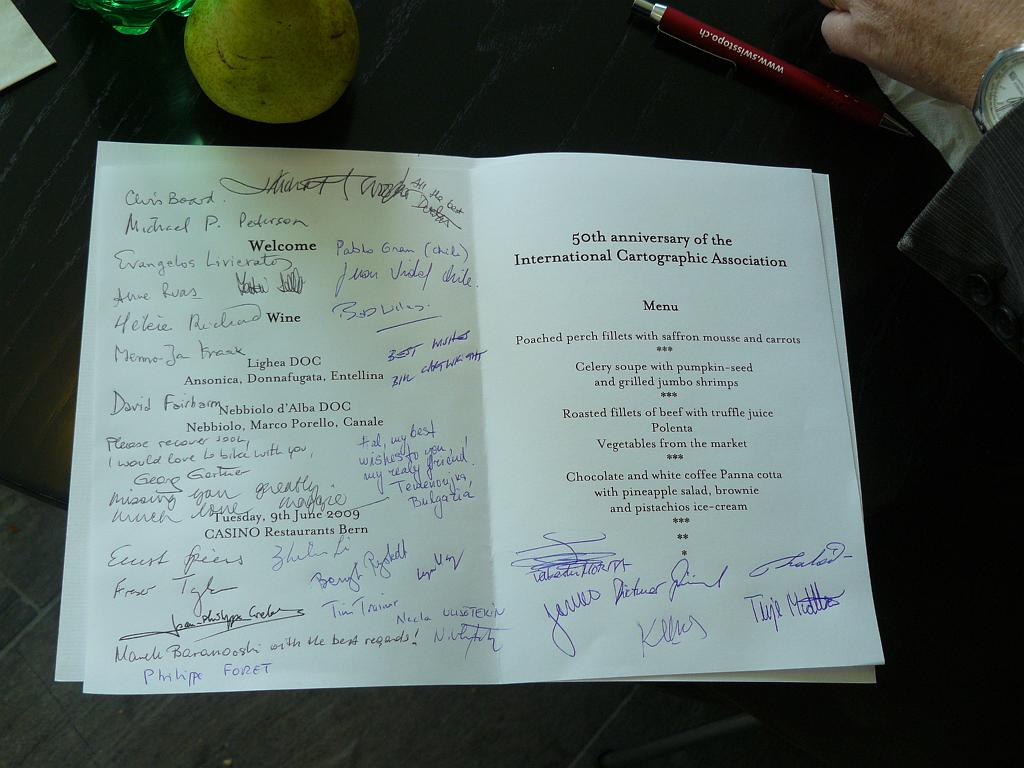 www.swisstopo.ch
Chris Board.
All the best
Michael P. Peterson
Welcome
Pablo Gran (Chile)
Evangelos Livieratos
Juan Vidal Chile.
Anne Ruas
Hélène Richard
Wine
Menno-Jan Kraak
Lighea DOC
Ansonica, Donnafugata, Entellina
BEST WISHES
BILL CARTWRIGHT
David Fairbairn
Nebbiolo d'Alba DOC
Nebbiolo, Marco Porello, Canale
Please recover soon,
I would love to bike with you,
Georg Gartner
my best
wishes to you,
my realy friend!
Bulgaria
missing you greatly
much love
Tuesday, 9th June 2009
CASINO Restaurants Bern
Ernst Spiess
Zhilin Li
Fraser Taylor
Tim Trainor
Necla ULUGTEKIN
Marek Baranowski with the best regards!
Philippe FORET
50th anniversary of the
International Cartographic Association
Menu
Poached perch fillets with saffron mousse and carrots
***
Celery soupe with pumpkin-seed
and grilled jumbo shrimps
***
Roasted fillets of beef with truffle juice
Polenta
Vegetables from the market
***
Chocolate and white coffee Panna cotta
with pineapple salad, brownie
and pistachios ice-cream
***
**
*
MORITA
James
Dietmar